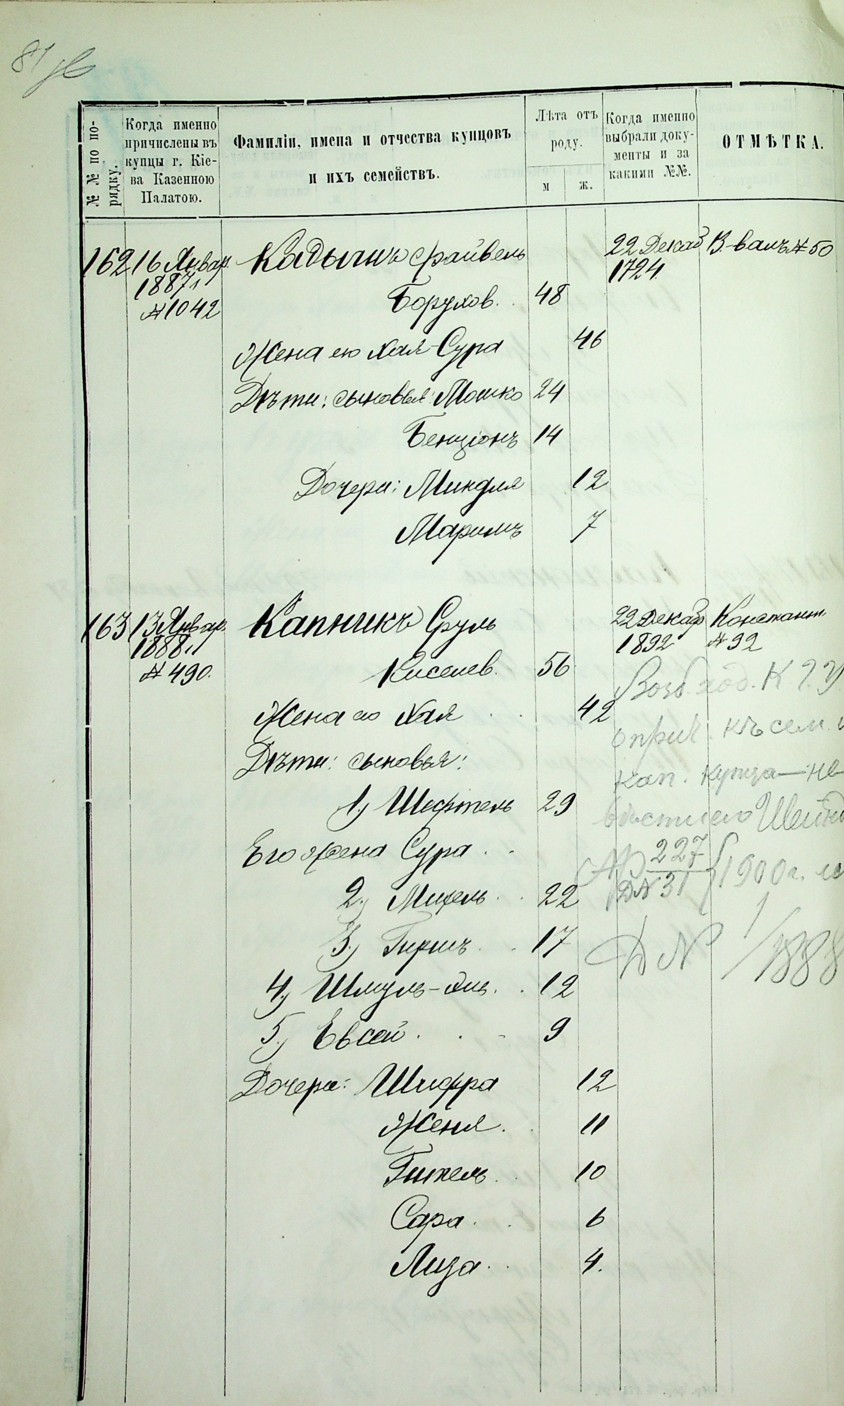 81
№ № по по-
рядку.
Когда именно
причислены въ
купцы г. Кіе-
ва Казенною
Палатою.
Фамиліи, имена и отчества купцовъ
и ихъ семействъ.
Лѣта отъ
роду.
м ж.
Когда именно
выбрали доку-
менты и за
какими №№.
ОТМѢТКА.
162 16 Январ. Кадышъ Файвель 22 Декаб В-валъ № 50
1887 1724
№ 1042 Борухов. 48
Жена его Хая-Сура 46
Дѣти: сыновья Мошко 24
Бенціонъ 14
Дочери: Миндля 12
Маримъ 7
163 13 Январ. Капникъ Сруль 22 Декабр Константин
1888 1892 № 92
№ 490. Киселев. 56
Жена его Хая 42
Дѣти: сыновья:
1) Шефтель 29
Его жена Сура
2) Михель 22
3) Гиршъ 17
4) Шмуль- 12
5) Евсей 9
Дочери: Шифра 12
Женя 11
Гитель 10
Сара 6
Лиза 4.
къ сем.
кап. купца — не-
вѣсткою
227
Д№ 31 1900 г.
Д № 1/1888